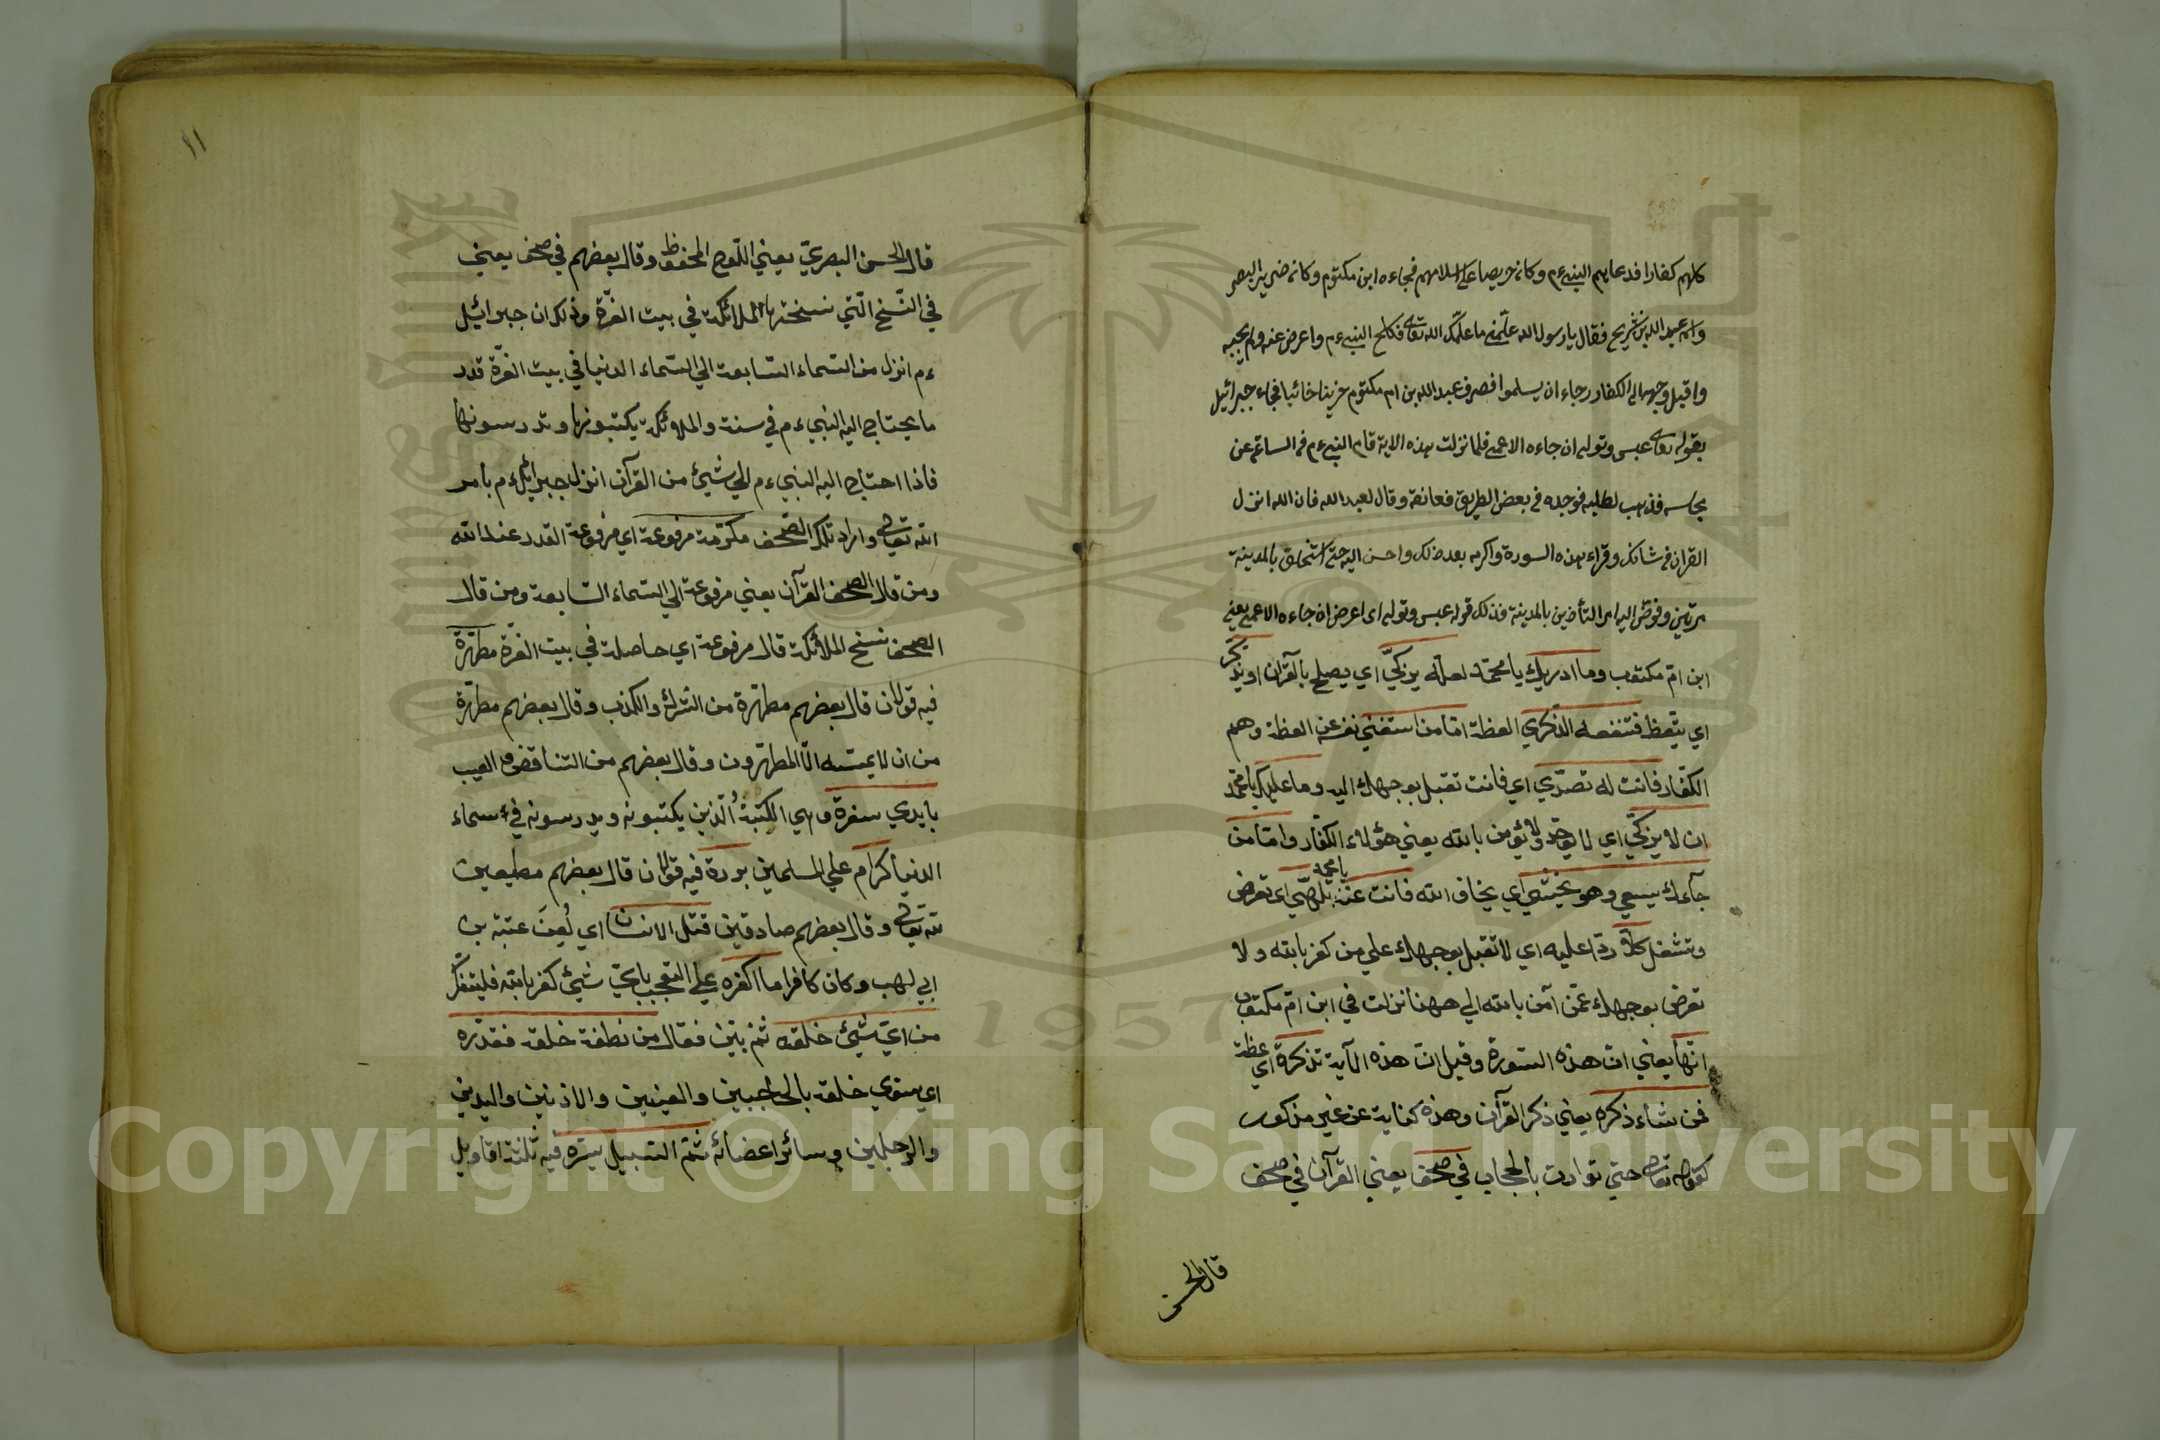 كلهم كفارا فدعاهم النبي ءم وكان حريصا على اسلامهم فجاءه ابن مكتوم وكان ضرير البصر
واسمه عبد الله بن شريح فقال يا رسول الله علمني ما علمك الله تعالى فكلح النبي ءم واعرض عنه ولم يجبه
واقبل وجهه الى الكفار رجاء ان يسلموا فصرف عبد الله بن ام مكتوم حزينا خائبا فجاء جبرائيل
بقوله تعالى عبس وتولى ان جاءه الاعمى فلما نزلت هذه الاية قام النبي ءم في الساعة عن
مجلسه فذهب لطلبه فوجده في بعض الطريق فعانقه وقال لعبد الله فان الله انزل
القران في شانك وقراء هذه السورة واكرمه بعد ذلك واحسن اليه حتى استخلق بالمدينة
مرتين وفوض اليه امر التأذين بالمدينة فذلك قوله عبس وتولى اى اعرض ان جاءه الاعمى يعني
ابن امّ مكتوب وما ادريك يا محمّد لعلّه يزكّيّ اي يصلح بالقرآن او يذكّر
اي يتّعظ فتنفعه الذّكري العظة امّا من استغني نفسه عن العظة وهم
الكفّار فانت له تصدّي اي فانت تقبل بوجهك اليه وما عليك يا محمّد
ان لا يزكّيّ اي لا يوحّد ولا يؤمن بالله يعني هؤلاء الكفّار وامّا من
جآءك يسعي وهو يخشي اي يخاف الله فانت عنه يا محمد تلهّي اى تعرض
وتشغل كلّا ردّا عليه اي لا تقبل بوجهك علي من كفر بالله ولا
تعرض بوجهك عمّن آمن بالله الي ههنا نزلت في ابن امّ مكتوب
انّها يعني انّ هذه السّورة وقيل انّ هذه الآية تذكرة اي عظة
فمن شاء ذكره يعني ذكر القرآن وهذه كناية عن غير مذكور
كقوله تعالى حتي توارت بالحجاب في صحف يعني القرآن في صحف
قال الحسن
١١
قال الحسن البصريّ يعني اللّوح المحفوظ وقال بعضهم في صحف يعني
في النّسخ الّتي نسختها الملائكة في بيت العزّة وذلك ان جبرائيل
ءم انزل من السّماء السّابعة الي السّماء الدنيا في بيت العزّة قدر
ما يحتاج اليه النبيءم في سنة والملائكة يكتبونها وتدرسونها
فاذا احتاج اليه النبيءم الي شيئ من القرآن انزل جبرائيل ءم بامر
الله تعالى واراد تلك الصّحف مكرّمة مرفوعة اي مرفوعة القدر عند الله
ومن قال الصحف القرآن يعني مرفوعة الي السّماء السّابعة ومن قال
الصحف نسخ الملائكة قال مرفوعة اي حاصلة في بيت العزّة مطهّرة
فيه قولان قال بعضهم مطهّرة من الشرك والكذب وقال بعضهم مطهّرة
من ان لا يمسّه الّا المطهّرون وقال بعضهم من التناقض والعيب
بايدي سفرة وهي الكتبة الّذين يكتبونه ويدرسونه في سماء
الدنيا كرام علي المسلمين بررة فيه قولان قال بعضهم مطيعين
لله تعالى وقال بعضهم صادقين قتل الانسان اي لُعِنَ عتبة بن
ابي لهب وكان كافرا ما اكفره علي التعجب باي شيئ كفر بالله فليتفكّر
من ايّ شيئ خلقه ثم بيّن فقال من نطفة خلقه فقدّره
اي سوّي خلقه بالحاجبين والعينين والاذنين واليدين
والرجلين وسائر اعضائه ثمّ السّبيل يسّره فيه ثلثة اقاويل
Copyright © King Saud University
1957